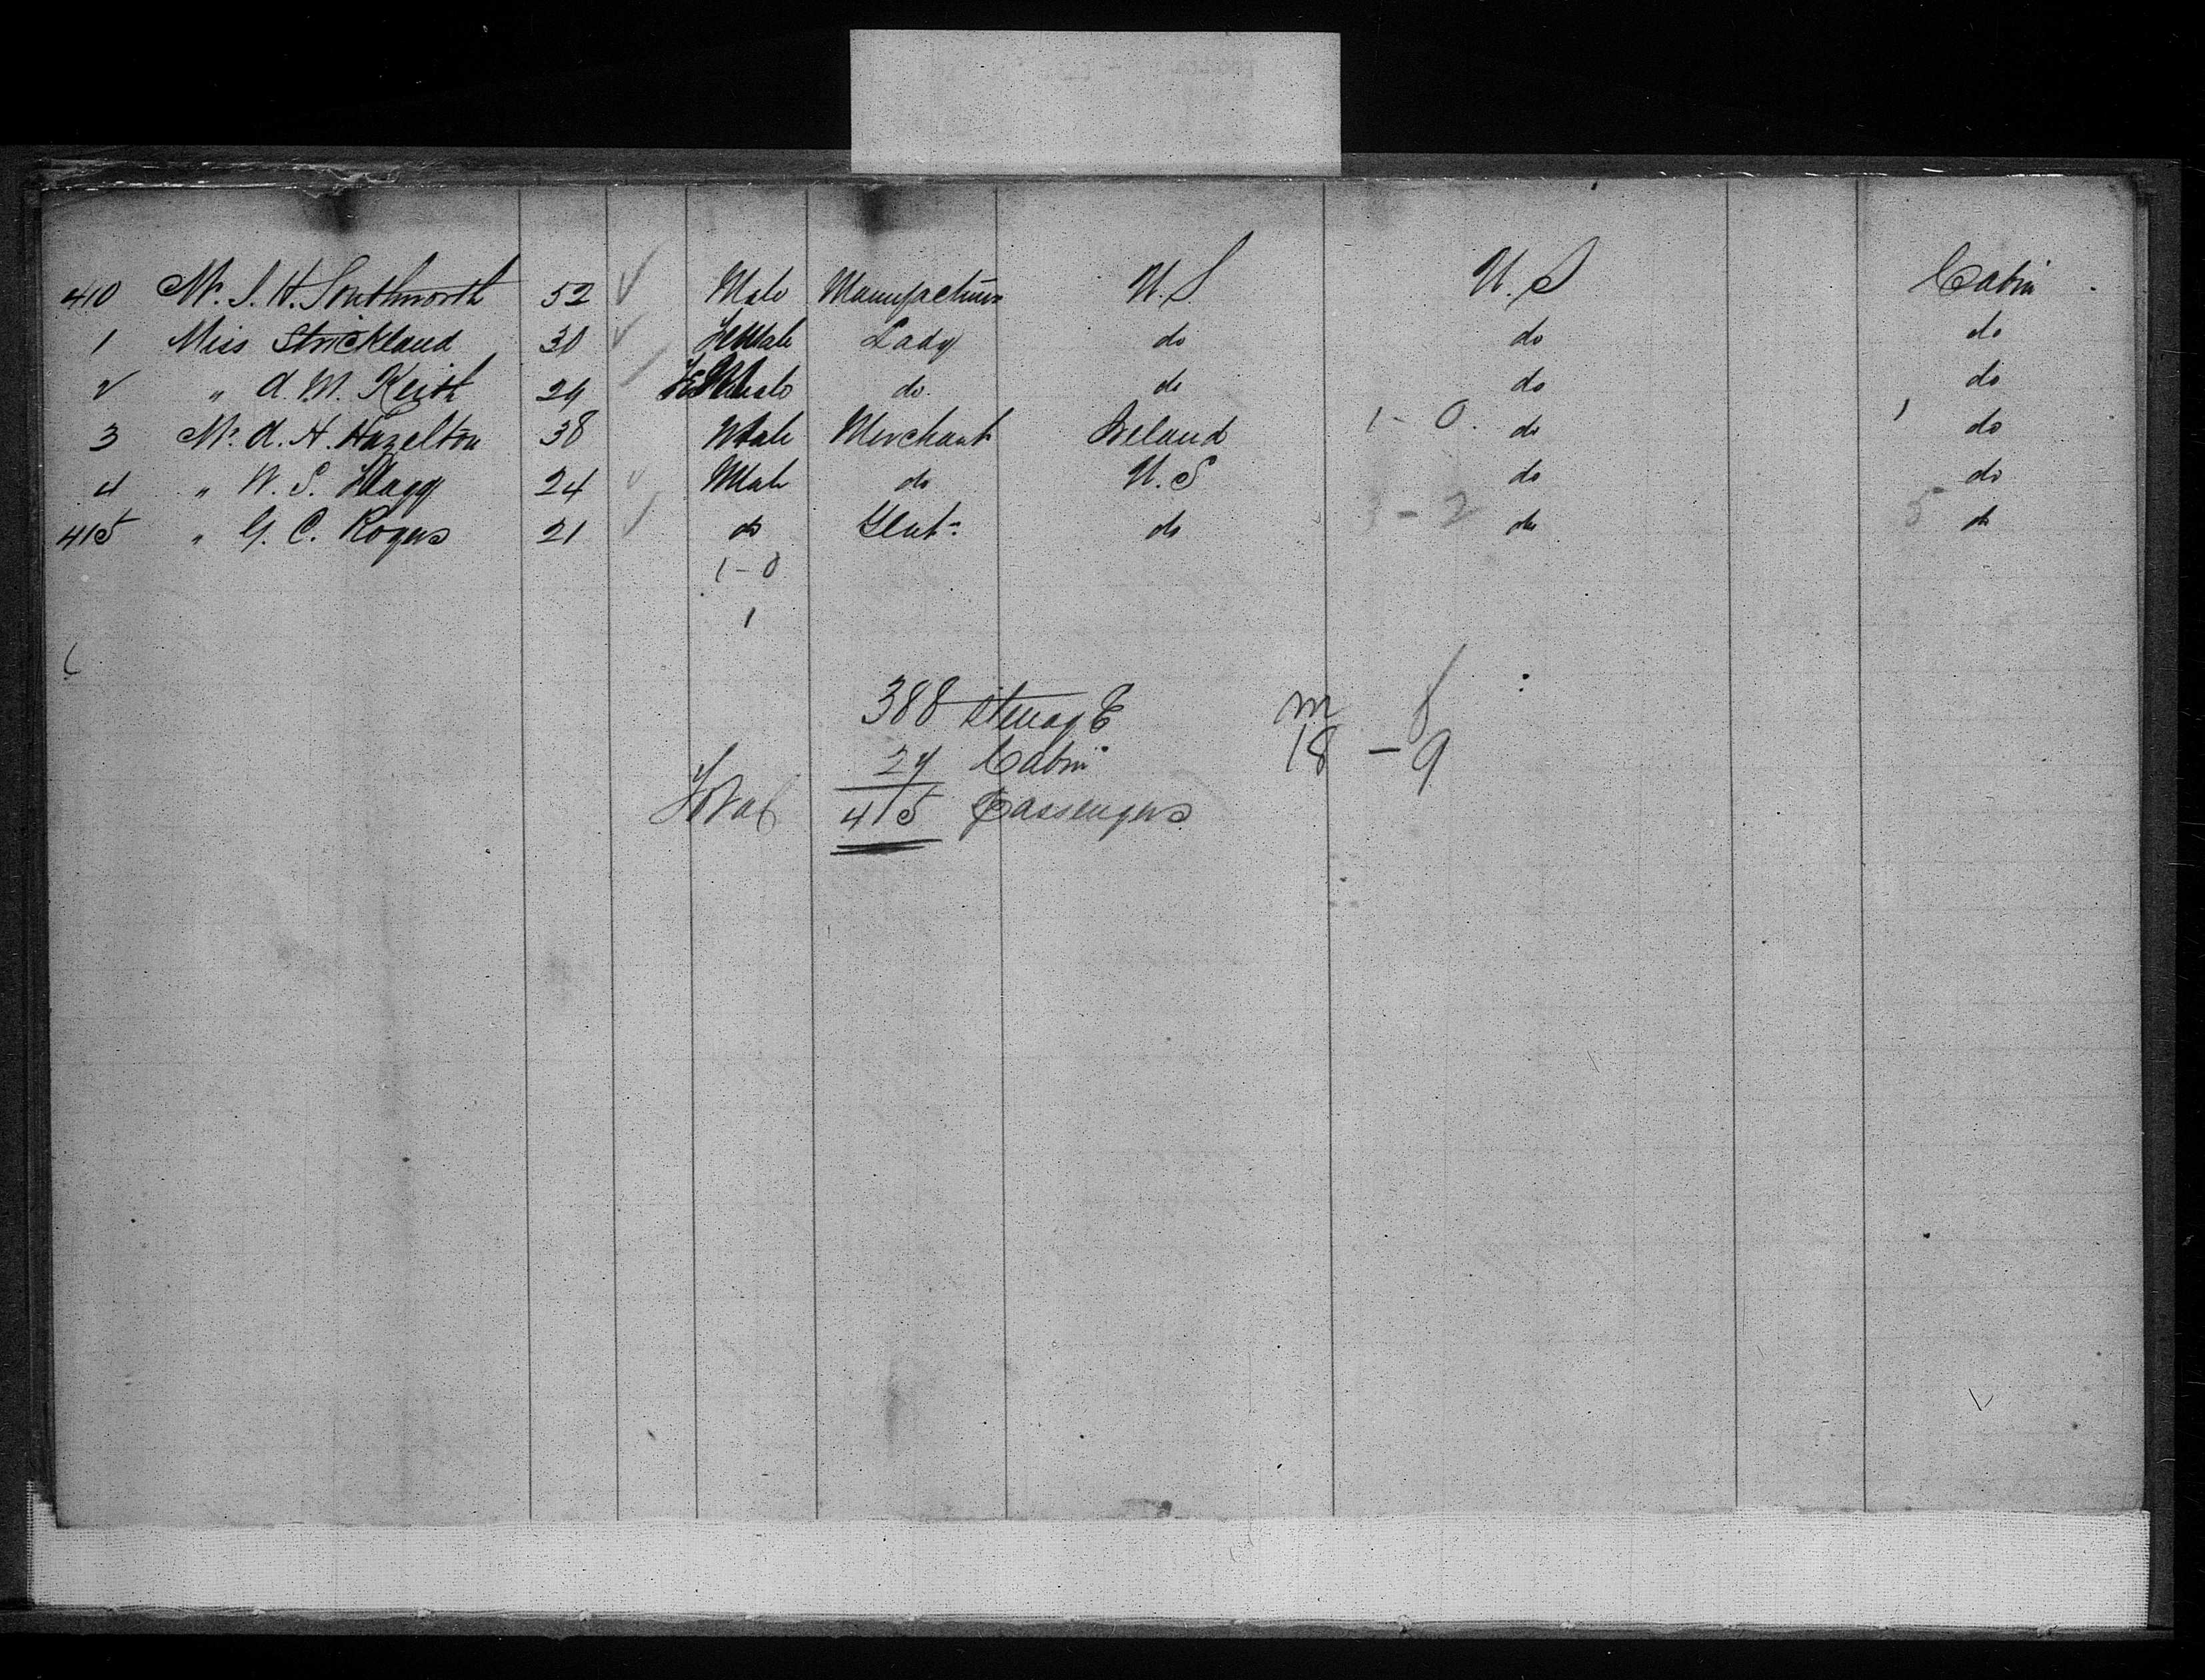 410 Mr. J. H. Southworth 52 ✓ Male Manufacturer U.S. U.S Cabin
1 Miss Strickland 30 ✓ Female Lady do do do
2 " A. M. Keith 29 ✓ Female do. do do do
3 Mr. A. H. Hazelton 38 Male Merchant Ireland 1-0. do 1 do
4 " W. S. Flagg 24 ✓ Male do U.S do do
415 " G. C. Rogers 21 ✓ do Gent. do 3-2 do 5 do
1-0
1
388 Steerage m f
27 Cabin 18 - 9
Total 415 Passengers